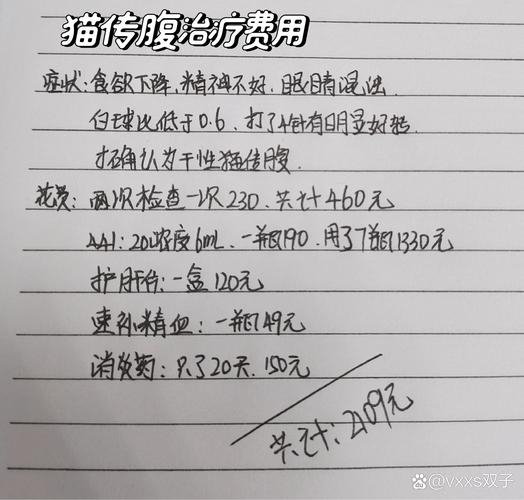 猫传腹治疗费用
症状:食欲下降,精神不好.眼睛混浊.
白球比低于0.6.打了4针有明显好转.
才确认为干性猫传腹.
花费:两次检查一次230.共计460元
441:20浓度6mL.一瓶190.用了7瓶1330元
护肝片:一盒120元
速补精血:一瓶49元
消炎药:只了20天.150元
共计:2109元
@vxxs双子